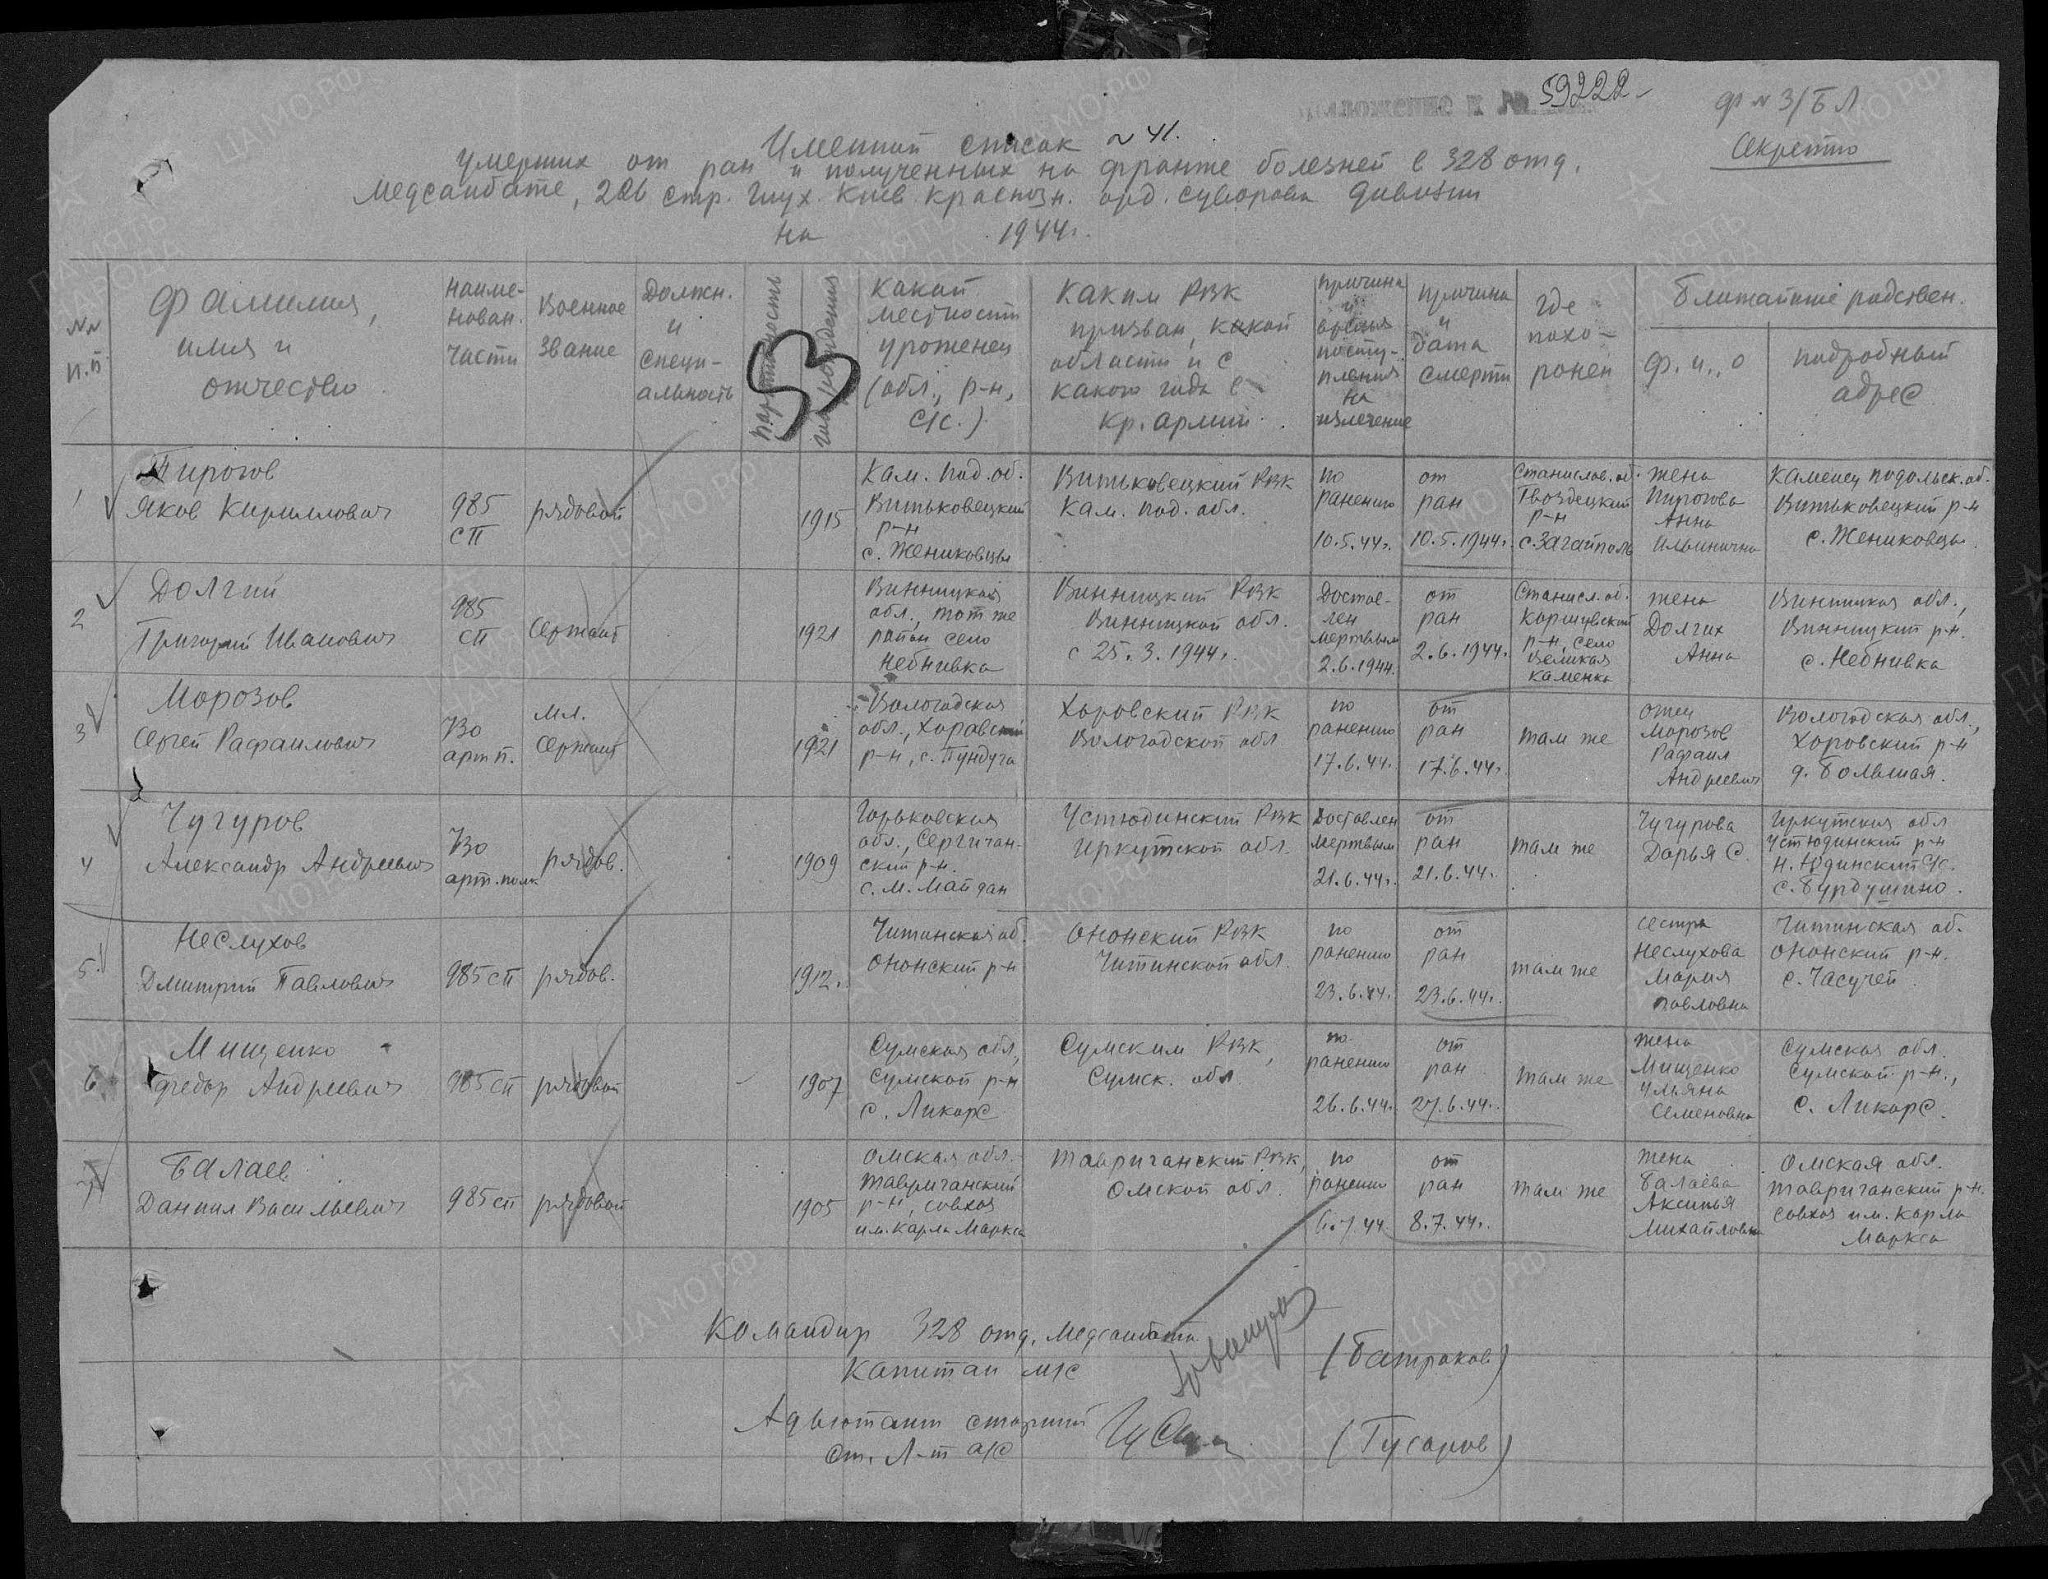 Приложение к № 59222
ф N 3/БЛ
Секретно
Именной список N 41.
умерших от ран и полученных на фронте болезней в 328 отд.
медсанбате, 226 стр. Глух. Киев. Краснозн. орд. Суворова дивизии
на 1944 г.
53
NN п.п
Фамилия, имя и отчество
Наименован. части
Военное звание
Должн. и специальность
Партийность
Год рождения
Какой местности уроженец (обл., р-н, с/с.)
Каким РВК призван, какой области и с какого года в Кр. армии
Причина и время поступления на излечение
Причина и дата смерти
Где похоронен
Ближайшие родствен.
Ф. и., о
подробный адрес
1
Пирогов
Яков Кириллович
985
сп
рядовой
1915
Кам. под. об.
Виньковецкий
р-н
с. Жениковцы
Виньковецкий РВК
Кам. под. обл.
по
ранению
10.5.44г.
от
ран
10.5.1944г.
Станислов. об.
Гвоздецкий
р-н
с. Загайполь
жена
Пирогова
Анна
Ильинична
Каменец подольск. об.
Виньковецкий р-н
с. Жениковцы
2
Долгий
Григорий Иванович
985
сп
Сержант
1921
Винницкая
обл., тот же
район село
Небнивка
Винницкий РВК
Винницкой обл.
с 25.3.1944г.
Достав-
лен
мертвым
2.6.1944.
от
ран
2.6.1944г.
Станисл. об.
Коршувской
р-н, село
Великая
Каменка
жена
Долгих
Анна
Винницкая обл.,
Винницкий р-н.
с. Небнивка
3
Морозов
Сергей Рафаилович
730
арт п.
Мл.
Сержант
1921
Вологодская
обл., Харовский
р-н, с. Пундуга
Харовский РВК
Вологодской обл
по
ранению
17.6.44г.
от
ран
17.6.44г.
там же
отец
Морозов
Рафаил
Андреевич
Вологодская обл.,
Харовский р-н
д. Большая.
4
Чугуров
Александр Андреевич
730
арт. полк
рядов.
1909
Горьковская
обл., Сергичан-
ский р-н.
с. М. Майдан
Устюдинский РВК
Иркутской обл.
Доставлен
мертвым
21.6.44г.
от
ран
21.6.44г.
там же
Чугурова
Дарья С.
Иркутская обл
Устюдинский р-н
Н. Юдинский с/с.
5
Неслухов
Дмитрий Павлович
985 сп
рядов.
1912.
Читинская об.
Ононский р-н
Ононский РВК
Читинской обл.
по
ранению
23.6.44.
от
ран
23.6.44г.
там же
сестра
Неслухова
Мария
Павловна
Читинская об.
Ононский р-н.
с. Часучей
6
Мищенко
Федор Андреевич
985 сп
рядовой
-
1907
Сумская обл,
Сумской р-н
с. Ликарс
Сумским РВК,
Сумск. обл.
по
ранению
26.6.44г.
от
ран
27.6.44г.
там же
жена
Мищенко
Ульяна
Семеновна
Сумская обл.
Сумской р-н.,
с. Ликарс.
7
Балаев
Даниил Васильевич
985 сп
рядовой
1905
Омская обл.
Тавричанский
р-н, совхоз
им. Карла Маркса
Тавричанский РВК,
Омской обл.
по
ранению
6.7.44
от
ран
8.7.44г.
там же
жена
Балаева
Аксинья
Михайловна
Омская обл.
Тавричанский р-н.
совхоз им. Карла
Маркса
Командир 328 отд. медсанбата
Капитан м/с
(Батраков)
Адъютант старший
Ст. Л-т а/с
(Гусаров)
ПАМЯТЬ НАРОДА
ЦА МО РФ